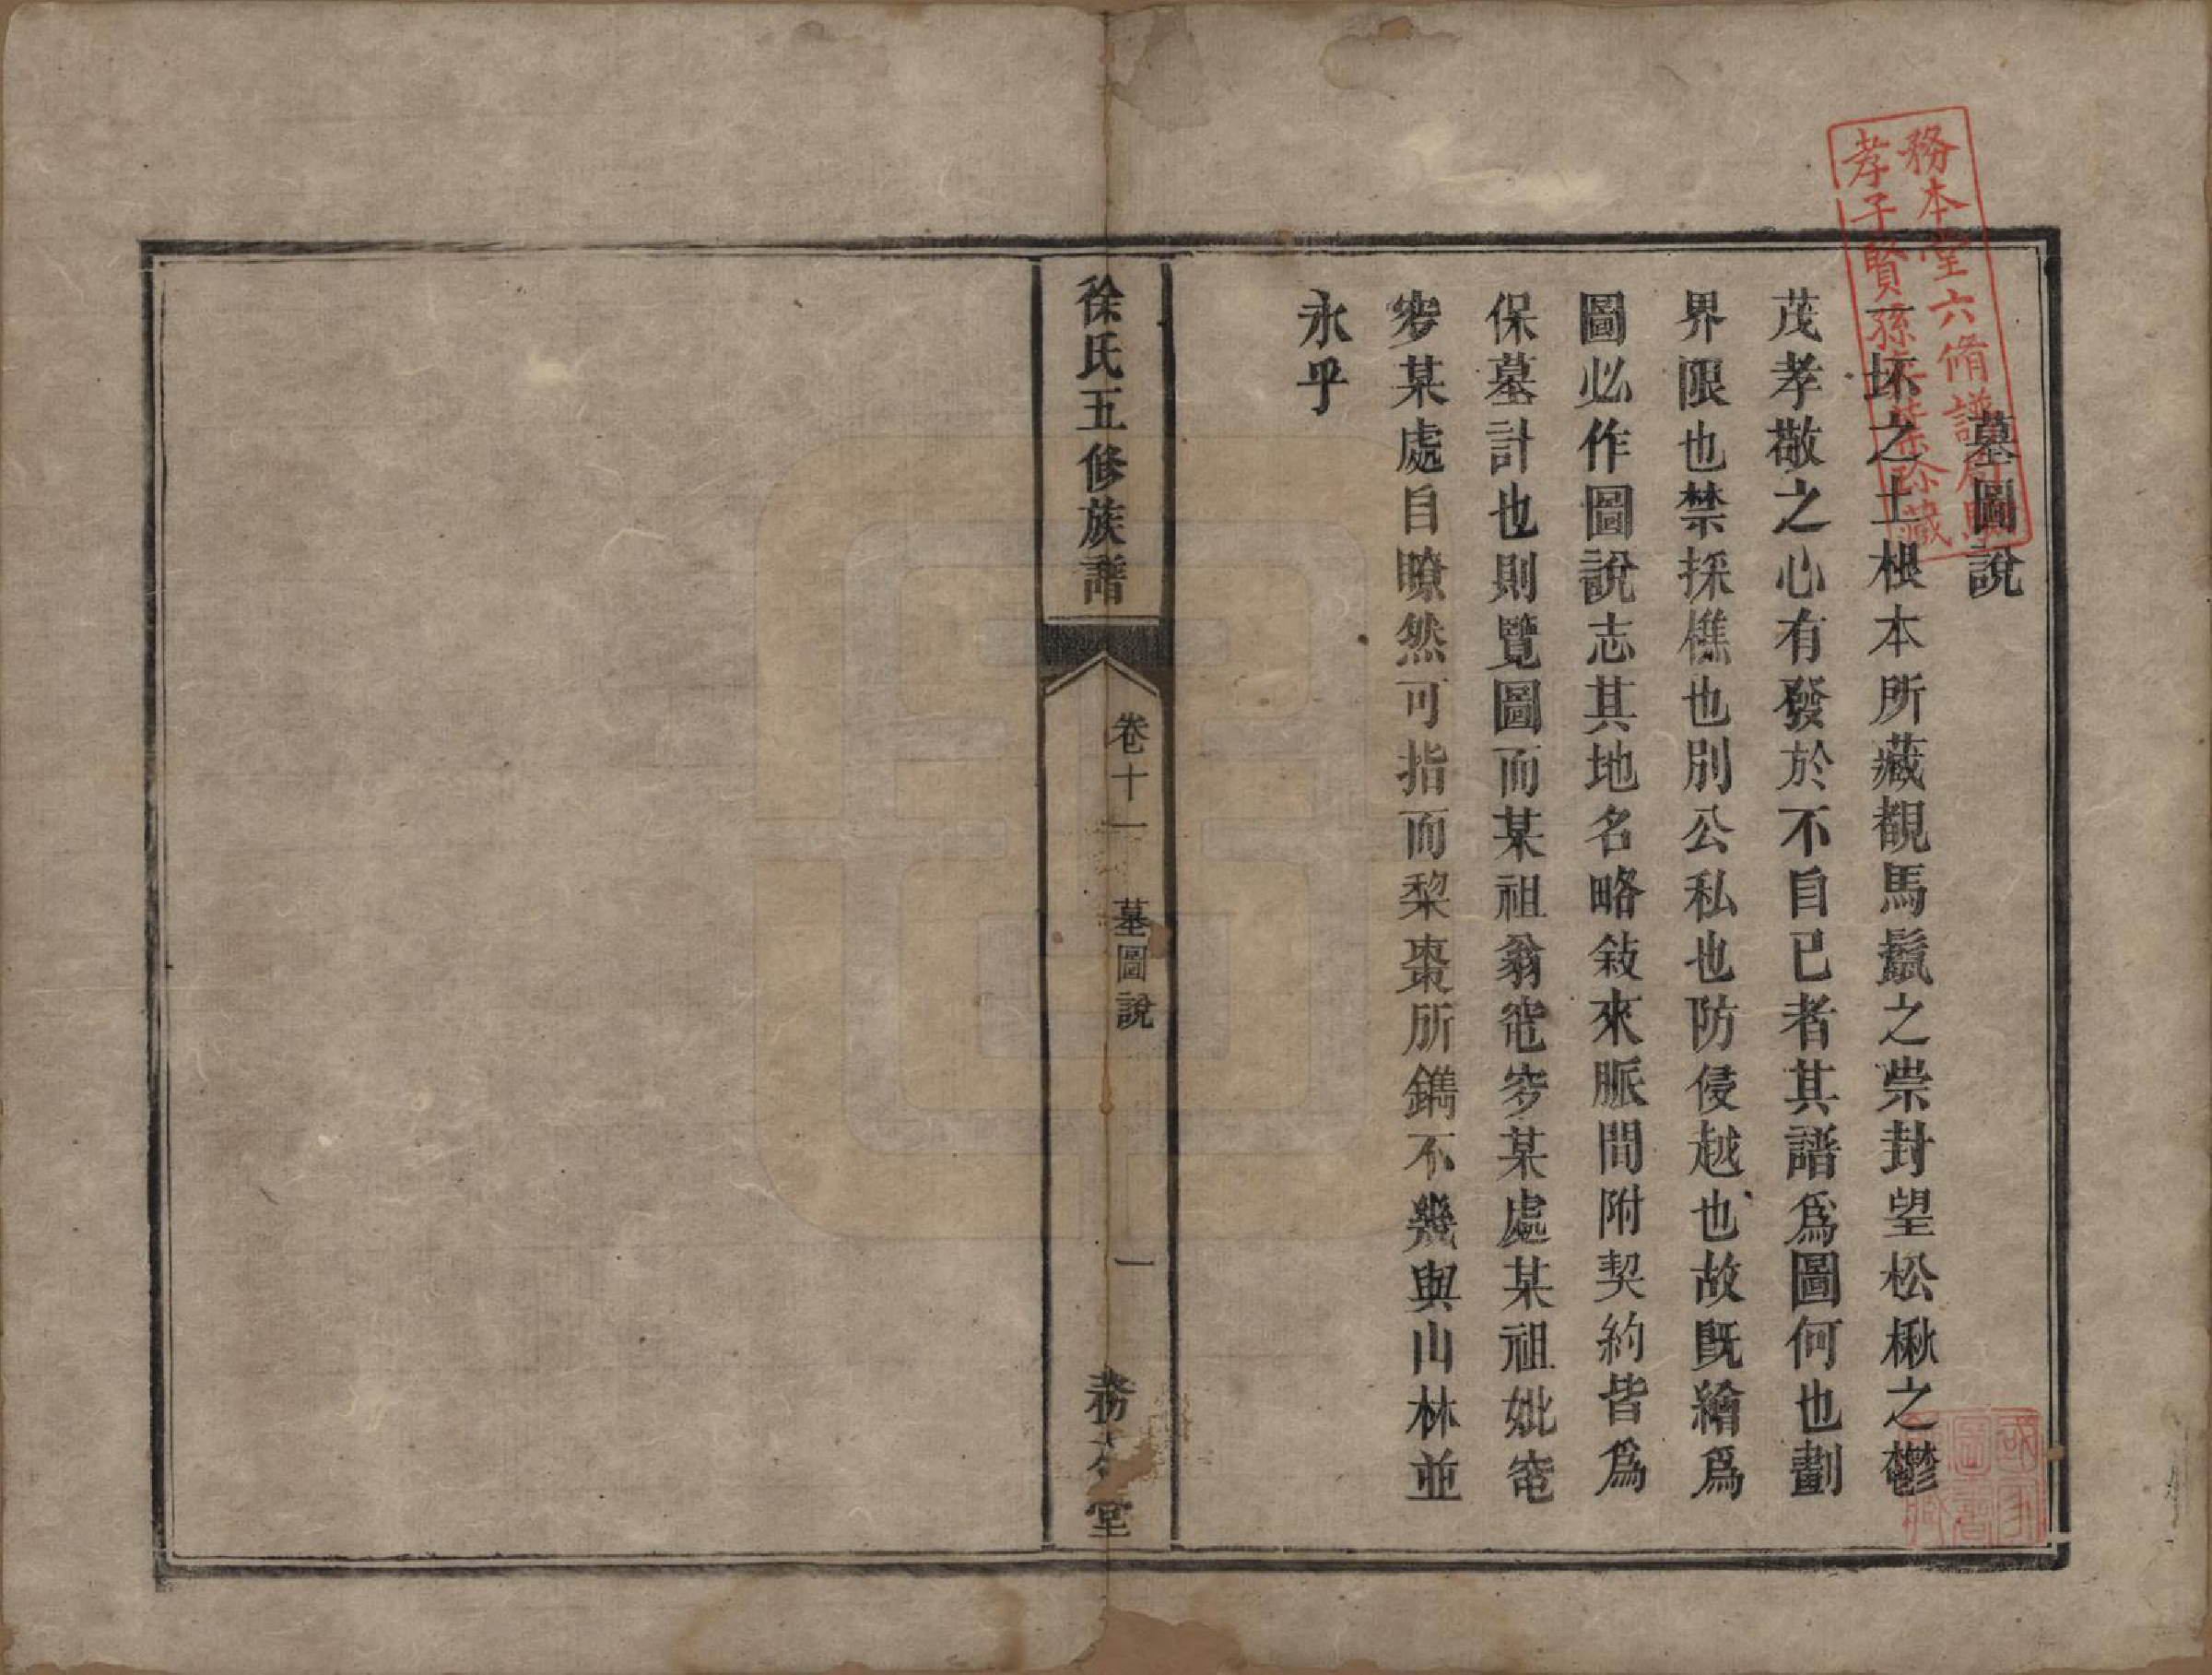 墓圖說
一抔之土根本所藏覩馬鬛之崇封望松楸之鬱
茂孝敬之心有發於不自已者其譜爲圖何也劃
界限也禁採樵也別公私也防侵越也故旣繪爲
圖必作圖說志其地名略敍來脈間附契約皆爲
保墓計也則覽圖而某祖翁窀穸某處某祖妣窀
穸某處自瞭然可指而棃棗所鐫不幾與山林並
永乎
徐氏五修族譜
卷十一
墓圖說
一
務本堂
務本堂六脩譜
孝子賢孫 珍藏
國家圖書館藏